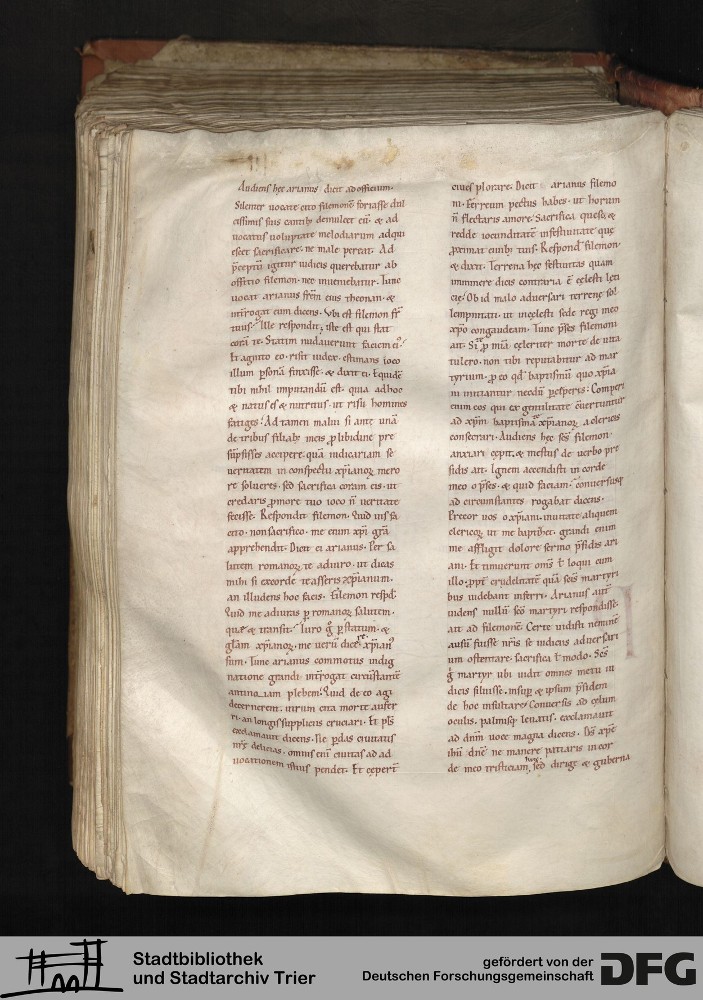 Audiens hec arianus dicit ad officium.
Silenter uocate cito filemonē fortasse dul
cissimis suis cantib; demulcet eū. & ad
uocatus uoluptate melodiarum adqui
escet sacrificare. ne male pereat. Ad
p̄ceptū igitur iudicis querebatur ab
officio filemon. nec inueniebatur. Tunc
uocat arianus frēm eius theonan. &
int̄rogat eum dicens. Vbi est filemon fr̄
tuus? Ille respondit; iste est qui stat
corā te. Statim nudauerunt faciem ei;
Et agnito eo. risit iudex. estimans ioco
illum p̱sonā finxisse. & dixit ei. Equidē
tibi nihil imputandū est. quia adhoc
& natus es & nutritus. ut risū homines
fatiges. Attamen malui si ante unā
de tribus filiab; meis p̱ libidine pre
sūpsisses accipere. quā iudicariam se
ueritatem in conspectu xp̄ianoꝝ mero
re solueres. sed sacrifica coram eis. ut
credaris p̱ more tuo ioco n̄ ueritate
fecisse. Respondit filemon. Quid uis fa
cito. non sacrifico. me enim xp̄i grā
apprehendit. Dicit ei arianus. Per sa
lutem romanoꝝ te adiuro. ut dicas
mihi si ex corde te asseris xp̄ianum.
an illudens hoc facis. Filemon respd̄.
Quid me adiuras p̱ romanoꝝ salutem.
quę & transit. Iuro ḡ p̱ statum. &
glām xp̄ianoꝝ. me uerū dicere. xp̄ian;
sum. Tunc arianus commotus indig
natione grandi int̄rogat circūstante
antinoitam plebem. Quid de eo agi
decernerent. utrum cita morte aufer
ri. an longis suppliciis cruciari. Et pl̄s
exclamauit dicens. Ne p̱das ciuitatis
nr̄ę delicias. omnis enī ciuitas ad ad
uocationem istius pendet. Et cępert̄
ciues plorare. Dicit arianus filemo
ni. Ferreum pectus habes. ut horum
n̄ flectaris amore. Sacrifica queso. &
redde iocunditatē in festiuitate quę
p̱ximat ciuib; tuis. Respond̄ filemon.
& dixit. Terrena hęc festiuitas quam
imminere dicis contraria ē cęlesti lęti
cię. Ob id malo aduersari terrenę sol
lempnitati. ut in cęlesti sede regi meo
xp̄o congaudeam. Tunc p̄ses filemoni
ait. Si p̱ miā celeriter morte de uita
tulero. non tibi reputabitur ad mar
tyrium. p̱ eo qd̄ baptismū quo xp̄ia
ni initiantur necdū p̱ceperis. Comperi
enim eos qui ex gentilitate cōuertuntur
ad xp̄m baptismā xp̄ianoꝝ a clericis
consecrari. Audiens hec scs̄ filemon.
anxiari cępit. & mestus de uerbo pre
sidis ait. Ignem accendisti in corde
meo o p̄ses. & quid faciam. conuersusq;
ad circumstantes rogabat dicens.
Precor uos o xp̄iani. inuitate aliquem
clericoꝝ ut me baptizet. grandi enim
me affligit dolore sermo p̄sidis ari
ani. Et timuerunt omīs t̄ loqui cum
illo. p̱pt̄ crudelitatē quā scīs martyri
bus uidebant inferri. Arianus aut̄
uidens nullū scō martyri respondisse.
ait ad filemonē. Certe uidisti neminē
ausū fuisse nr̄is se iudiciis aduersari
um ostentare. sacrifica t̄ modo. Scs̄
ḡ martyr ubi uidit omnes metu iu
dicis siluisse. insup̱ & ipsum p̄sidem
de hoc insultare. Conuersis ad cęlum
oculis. palmisq; leuatis. exclamauit
ad dn̄m uoce magna dicens. Ds̄ xp̄e
ihū dn̄e ne manere patiaris in cor
de meo tristiciam hanc. sed dirige & guberna
Stadtbibliothek
und Stadtarchiv Trier
gefördert von der
Deutschen Forschungsgemeinschaft
DFG